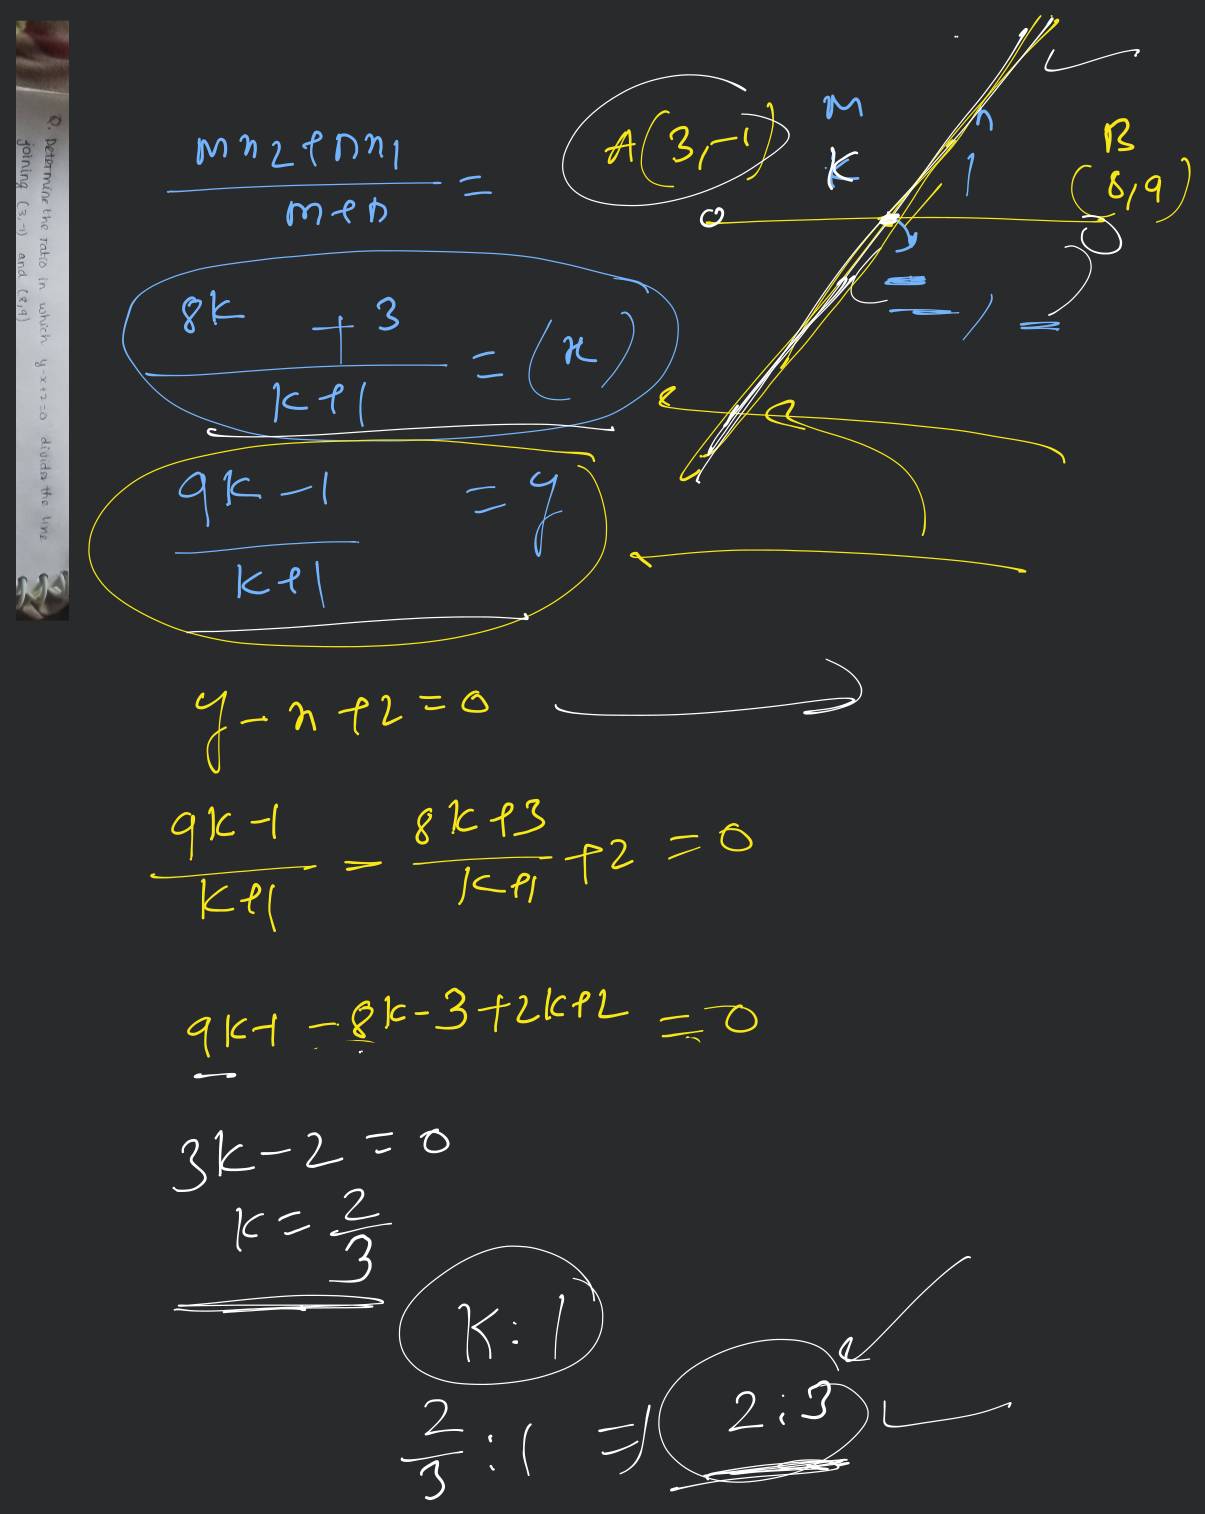 Q. Determine the ratio in which y-x+2=0 divides the line
joining (3,-1) and (8,9)
mx2+nx1
m+n
=
A(3,-1)
m
n
K
1
B
(8,9)
8k + 3
k+1
= (x)
9k-1
k+1
= y
y-x+2=0
9k-1
k+1
-
8k+3
k+1
+2=0
9k-1-8k-3+2k+2=0
3k-2=0
k=2/3
K:1
2/3:1 ⇒ 2:3